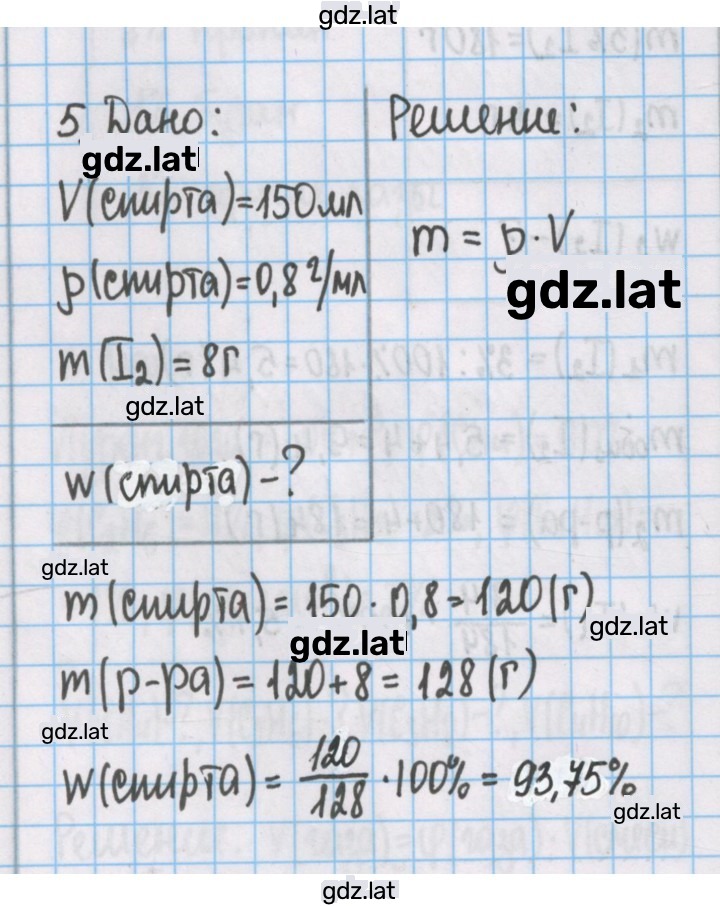 gdz.lat
5 Дано:
Решение:
gdz.lat
V(спирта)=150мл
m = ρ·V
ρ(спирта)=0,8 г/мл
gdz.lat
m(I₂) = 8г
gdz.lat
w(спирта) - ?
gdz.lat
m(спирта) = 150 · 0,8 = 120(г)
gdz.lat
gdz.lat
m(р-ра) = 120+8 = 128(г)
gdz.lat
w(спирта) = 120/128 · 100% = 93,75%
gdz.lat
gdz.lat